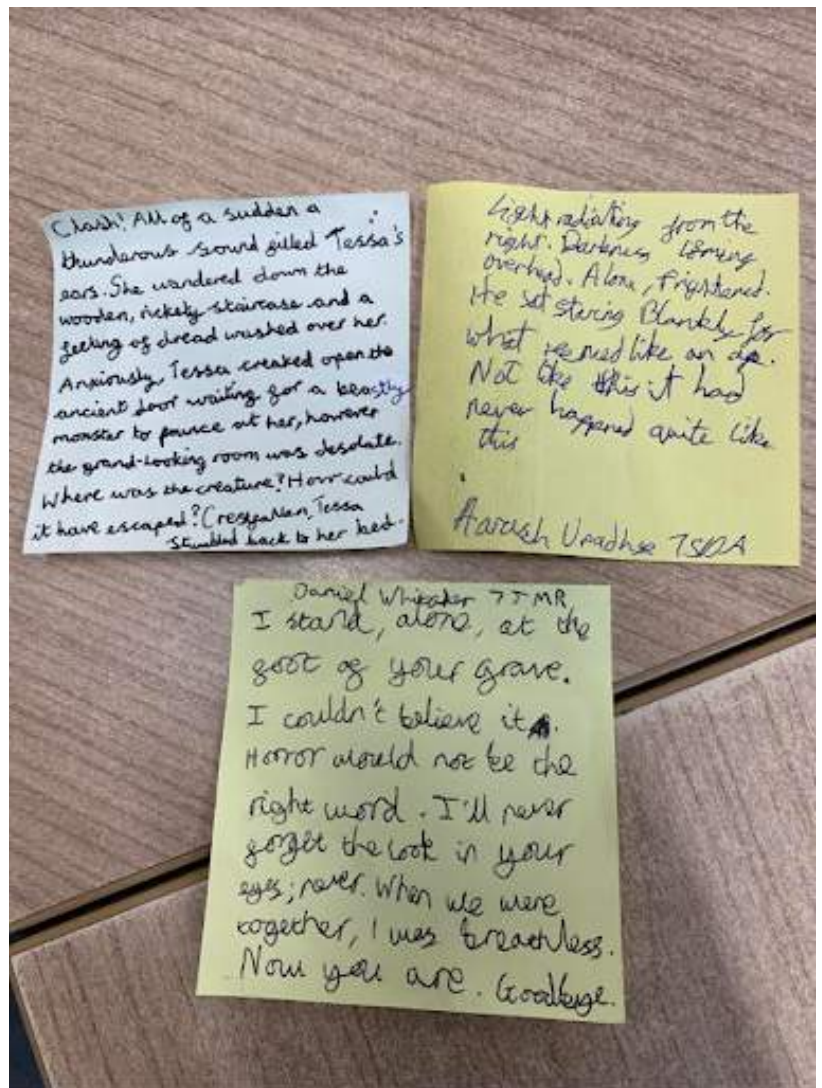 Crash! All of a sudden a
thunderous sound filled Tessa's
ears. She wandered down the
wooden, rickety staircase and a
feeling of dread washed over her.
Anxiously, Tessa creaked open the
ancient door waiting for a beastly
monster to pounce at her, however
the grand-looking room was desolate.
Where was the creature? How could
it have escaped? Tessa
stumbled back to her bed.
Light radiating from the
right. Darkness
overhead. Alone, frightened.
He sat staring Blankly for
what seemed like an age.
Not like this it had
never happened quite like
this
Aarush 7SDA
Daniel Whitaker 7JMR
I stand, alone, at the
foot of your grave.
I couldn't believe it.
Horror would not be the
right word. I'll never
forget the look in your
eyes; never. When we were
together, I was breathless.
Now you are. Goodbye.